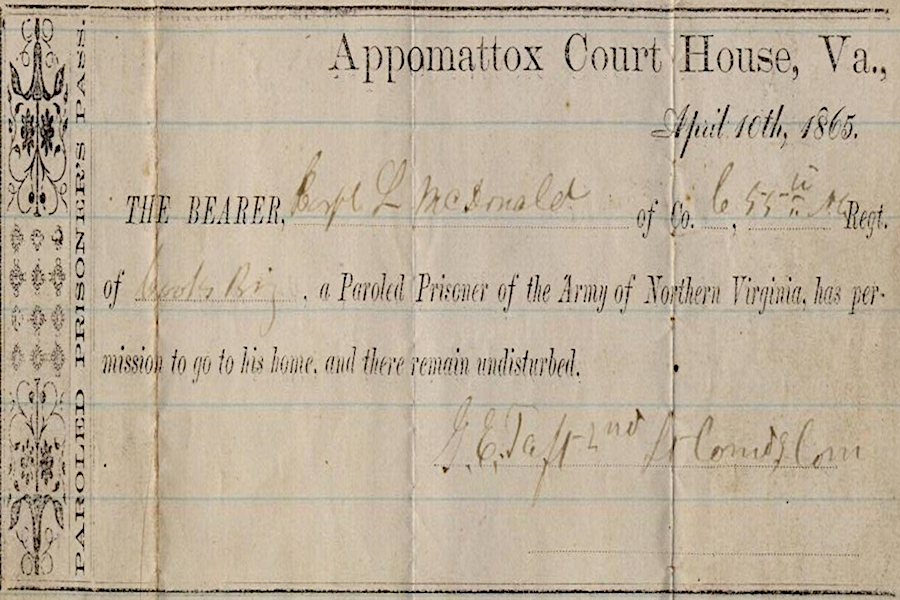 PAROLED PRISONER'S PASS.
Appomattox Court House, Va.,
April 10th, 1865.
THE BEARER, Corpl L McDonald of Co. C, 55th NC Regt.
of Cooks Brig, a Paroled Prisoner of the Army of Northern Virginia, has per-
mission to go to his home, and there remain undisturbed.
J. E. Taft 2nd Lt Comdg Com